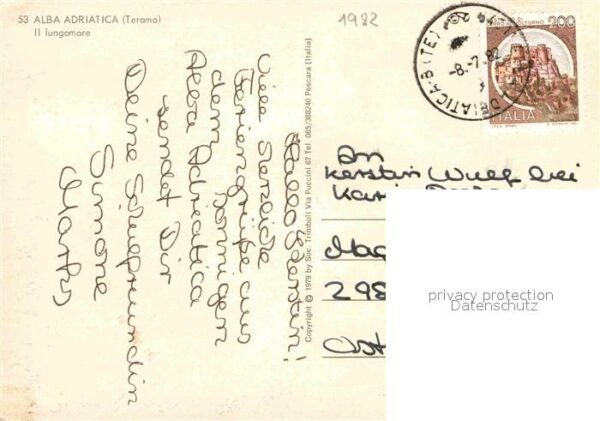 53 ALBA ADRIATICA (Teramo)
Il lungomare
1982
Hallo Kerstin!
Viele herzliche
Feriengrüße aus
dem sonnigen
Alba Adriatica
sendet Dir
Deine Schulfreundin
Simone
Copyright © 1979 by Soc. Trimboli Via Puccini 67 Tel. 085/388240 Pescara (Italia)
ADRIATICA-B (TE)
-8.-7.82
200
ITALIA
An
Kerstin Wulf bei
Mag
298
Ost
privacy protection
Datenschutz